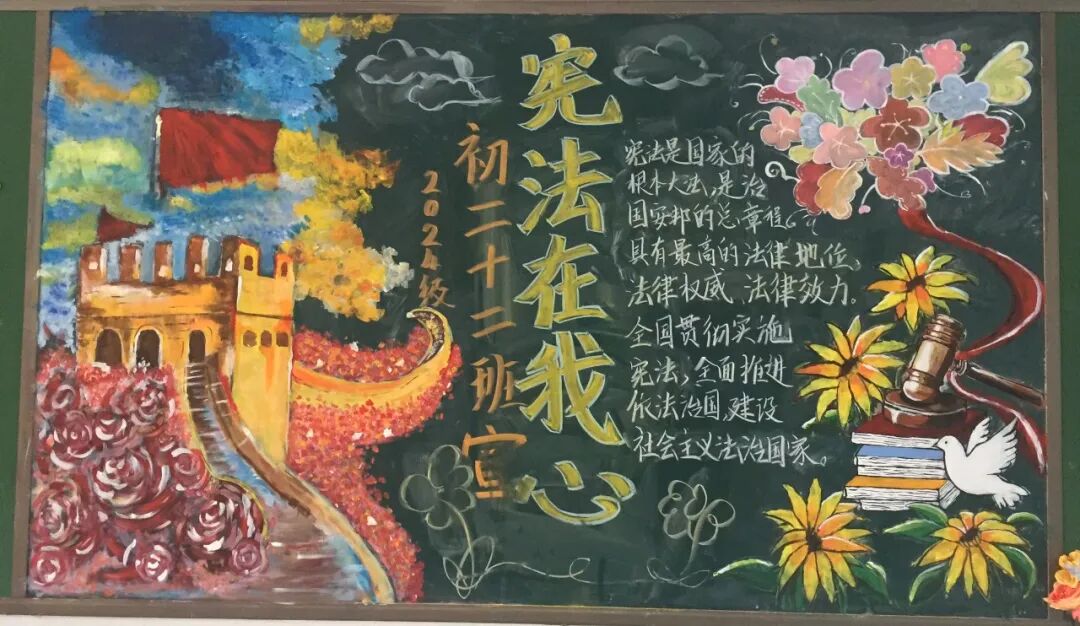 宪法在我心
初二十二班宣
2024级
宪法是国家的
根本大法,是治
国安邦的总章程。
具有最高的法律地位、
法律权威、法律效力。
全国贯彻实施
宪法,全面推进
依法治国,建设
社会主义法治国家。